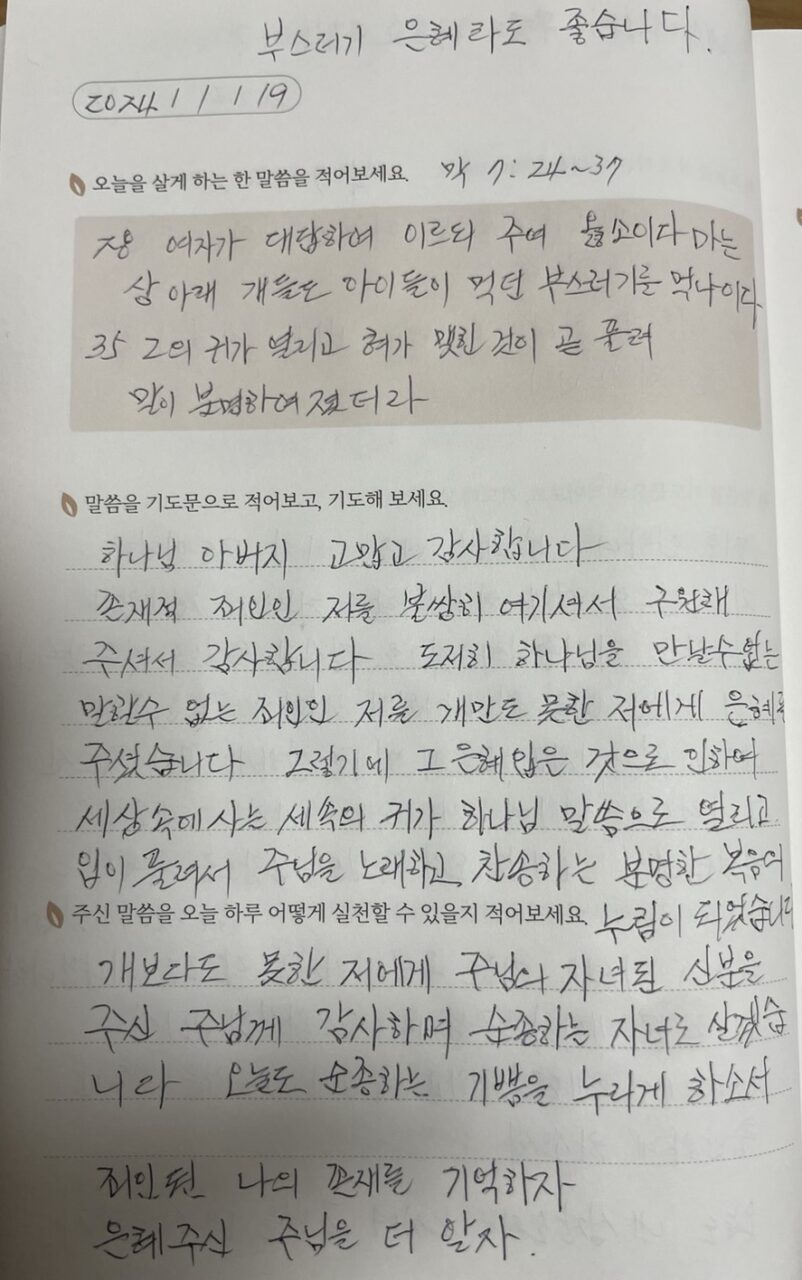 부스러기 은혜라도 좋습니다.
2024 / 1 / 19
오늘을 살게 하는 한 말씀을 적어보세요. 막 7: 24~37
여자가 대답하여 이르되 주여 옳소이다마는
상 아래 개들도 아이들이 먹던 부스러기를 먹나이다
35 그의 귀가 열리고 혀가 맺힌 것이 곧 풀려
말이 분명하여 졌더라
말씀을 기도문으로 적어보고, 기도해 보세요.
하나님 아버지 고맙고 감사합니다
존재적 죄인인 저를 불쌍히 여기셔서 구원해
주셔서 감사합니다 도저히 하나님을 만날수없는
말할수 없는 죄인인 저를 개만도 못한 저에게 은혜를
주셨습니다 그렇기에 그 은혜입은 것으로 인하여
세상속에 사는 세속의 귀가 하나님 말씀으로 열리고
입이 풀려서 주님을 노래하고 찬송하는 분명한 복음의
주신 말씀을 오늘 하루 어떻게 실천할 수 있을지 적어보세요. 누림이 되었습니다
개보다도 못한 저에게 주님의 자녀된 신분을
주신 주님께 감사하며 순종하는 자녀로 살겠습
니다 오늘도 순종하는 기쁨을 누리게 하소서
죄인된 나의 존재를 기억하자
은혜주신 주님을 더 알자.